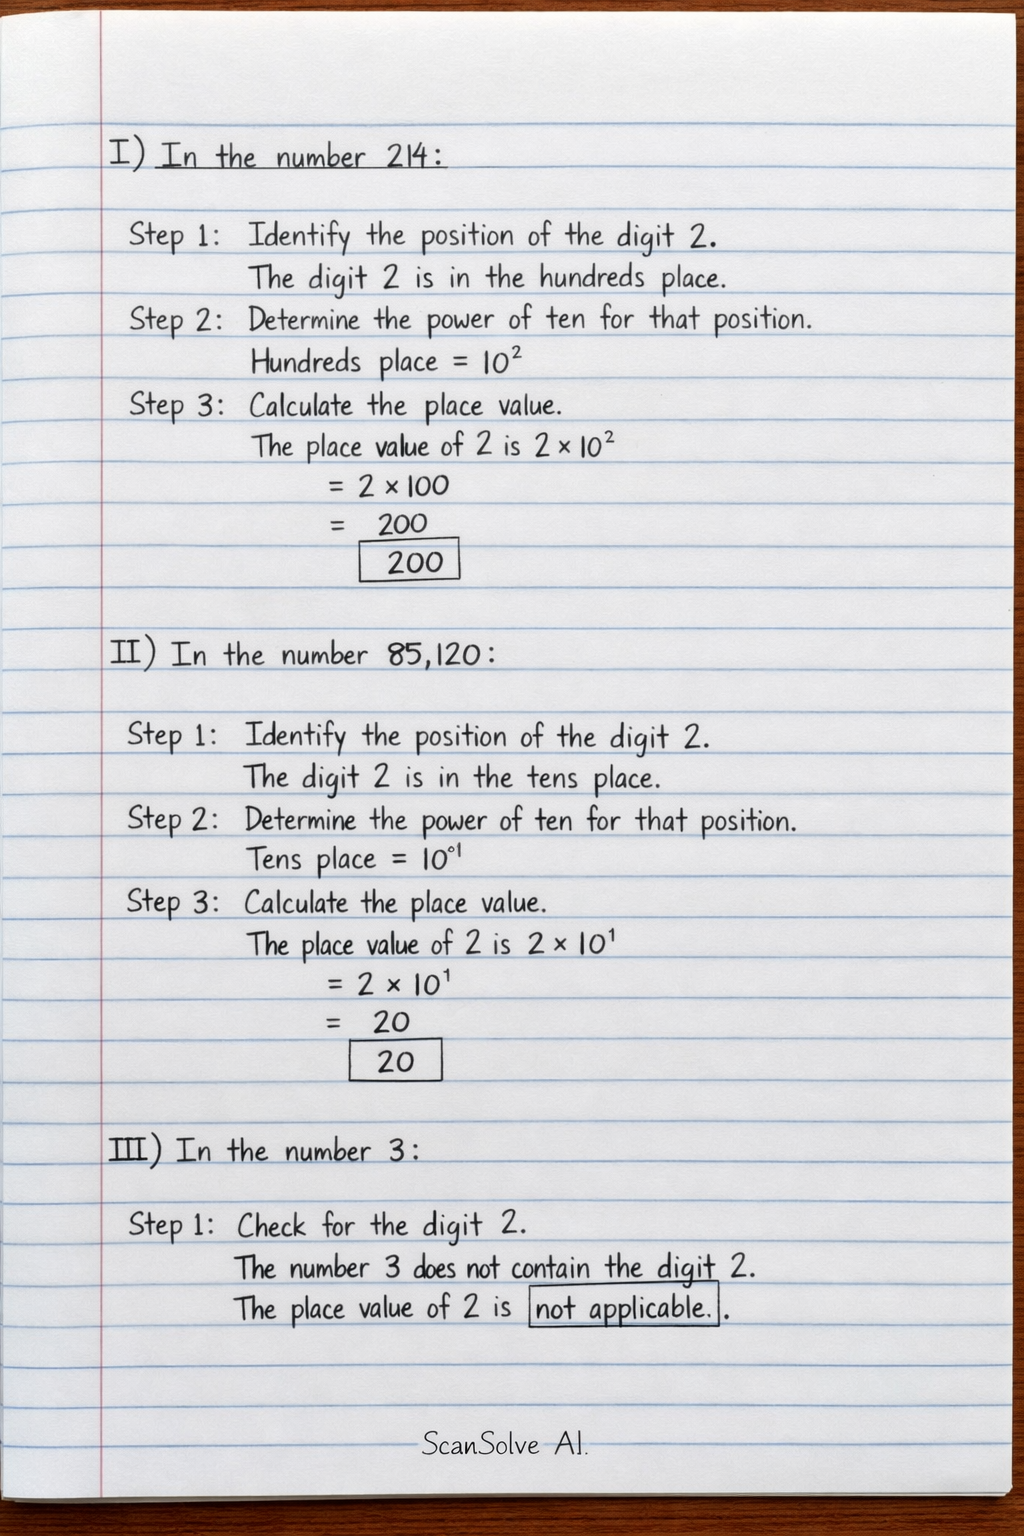 I) In the number 214:
Step 1: Identify the position of the digit 2.
The digit 2 is in the hundreds place.
Step 2: Determine the power of ten for that position.
Hundreds place = 10²
Step 3: Calculate the place value.
The place value of 2 is 2 × 10²
= 2 × 100
= 200
200
II) In the number 85,120:
Step 1: Identify the position of the digit 2.
The digit 2 is in the tens place.
Step 2: Determine the power of ten for that position.
Tens place = 10°¹
Step 3: Calculate the place value.
The place value of 2 is 2 × 10¹
= 2 × 10¹
= 20
20
III) In the number 3:
Step 1: Check for the digit 2.
The number 3 does not contain the digit 2.
The place value of 2 is not applicable..
ScanSolve AI.